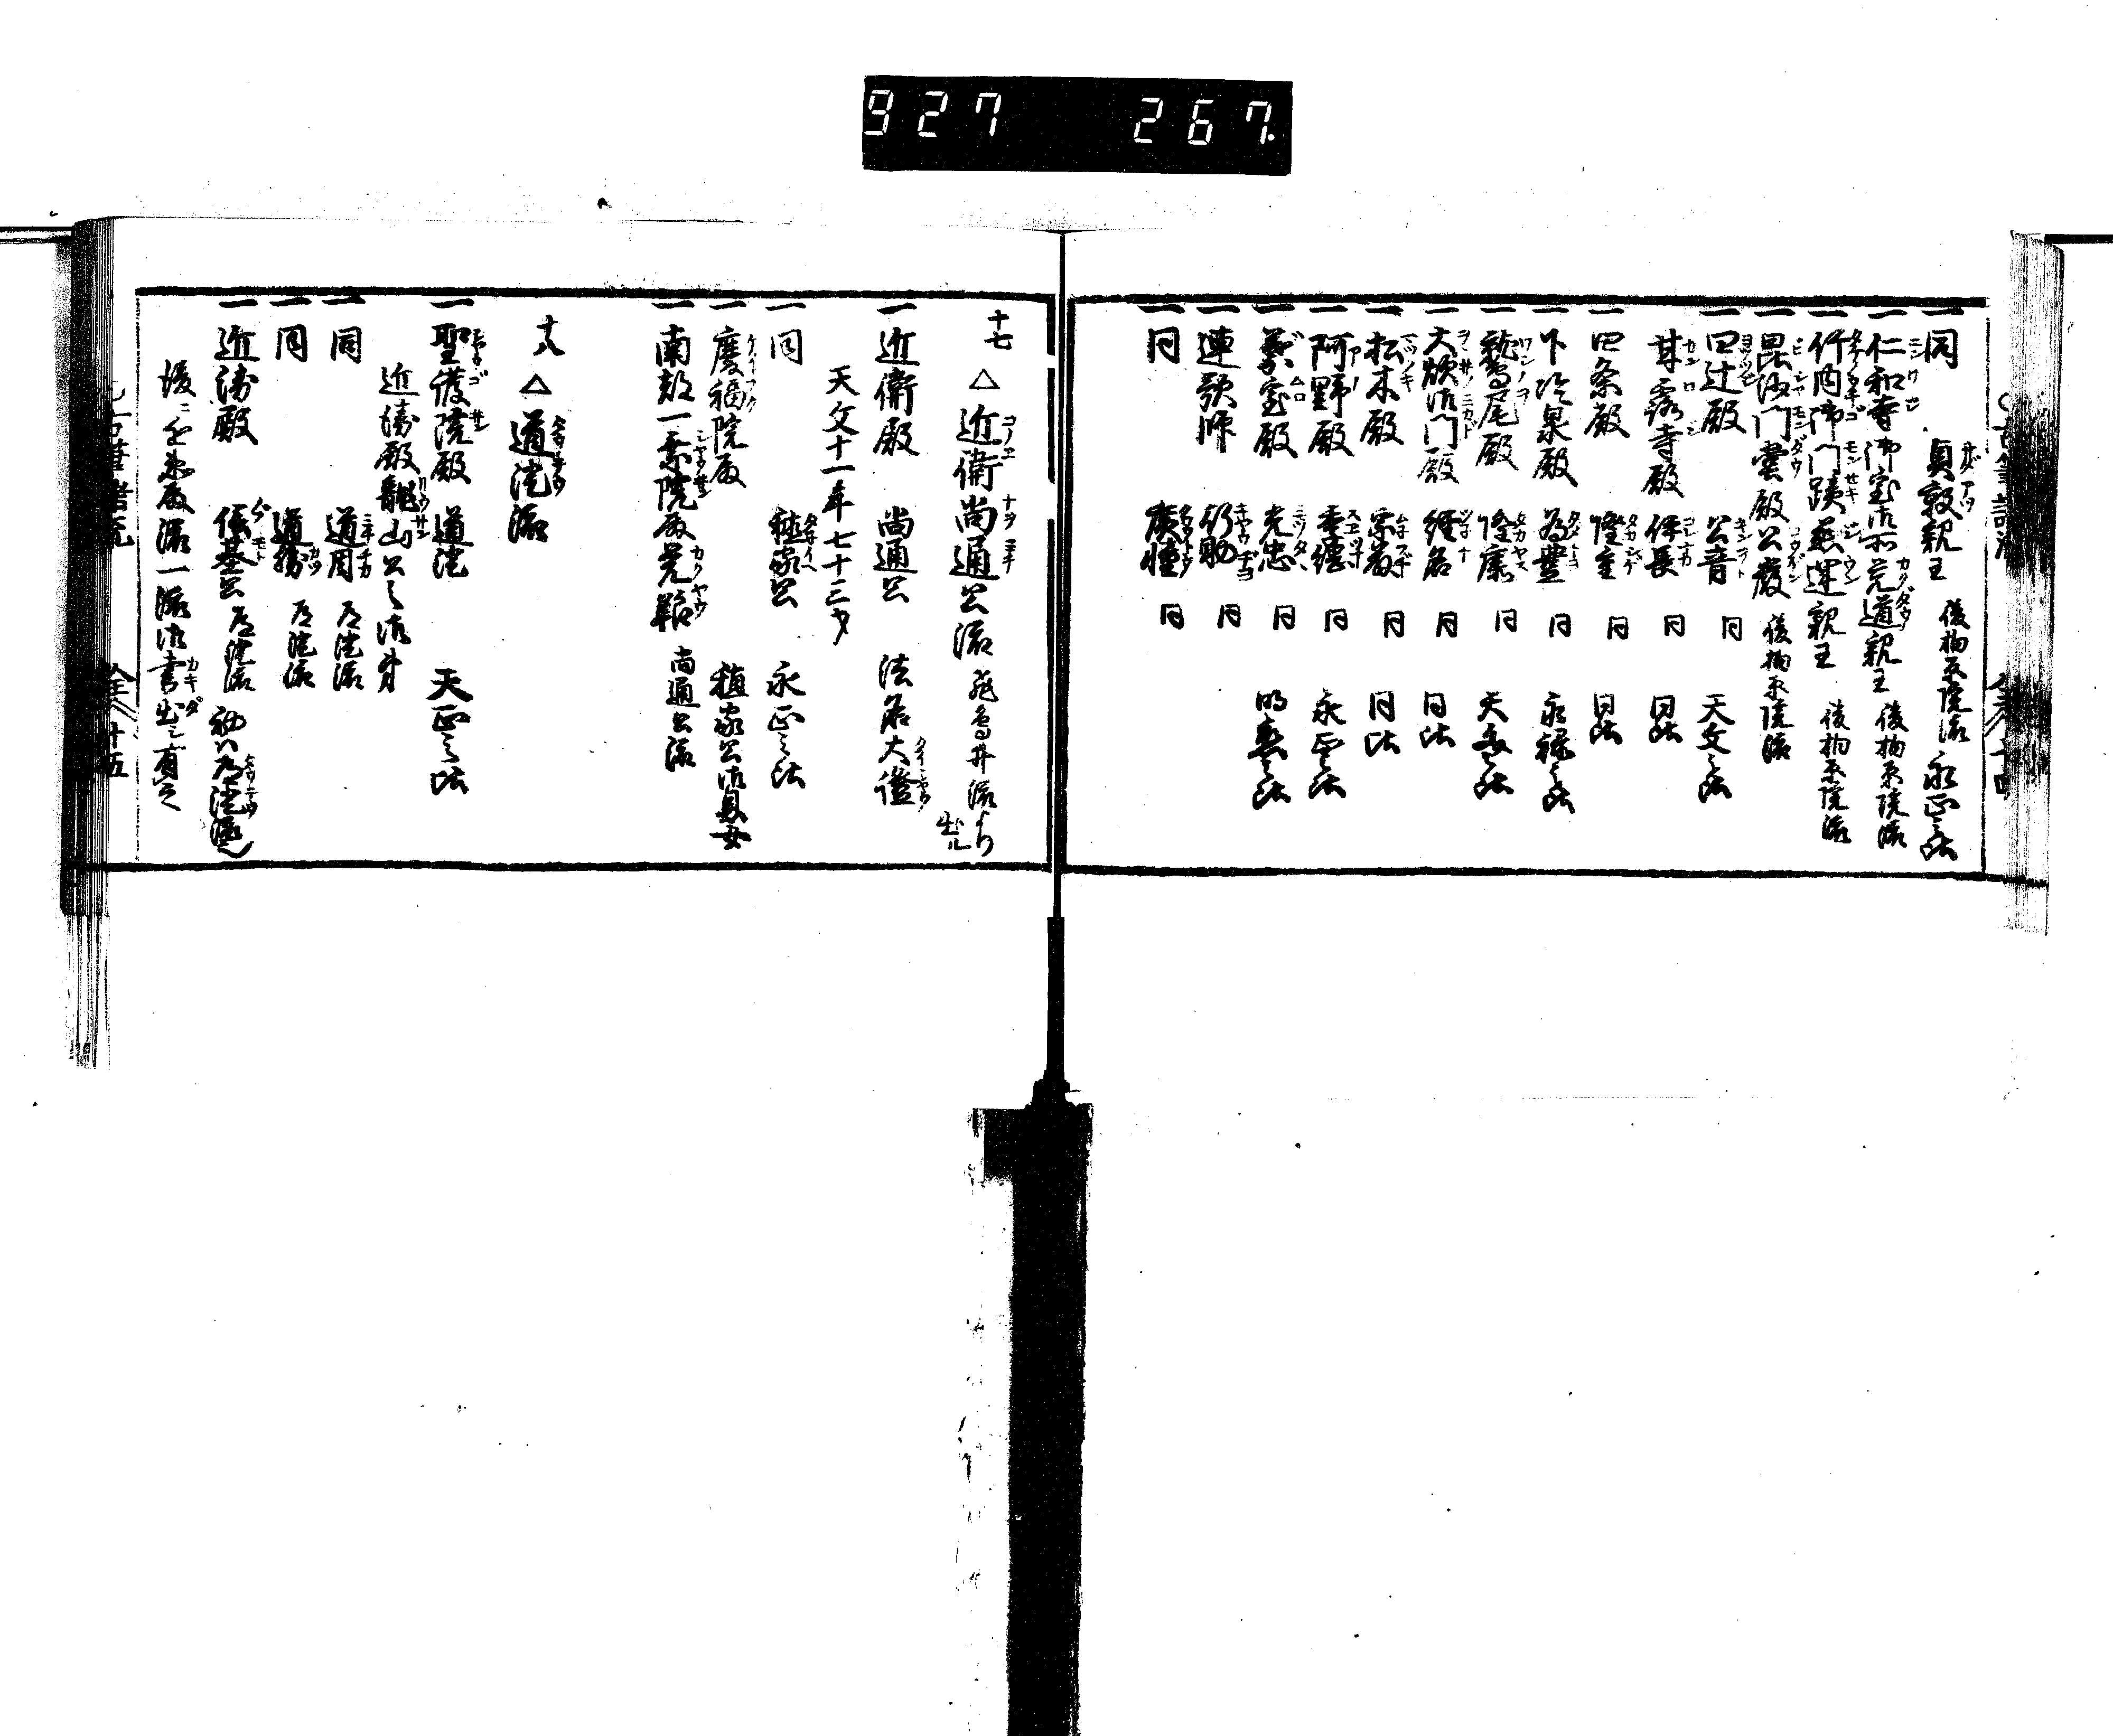 927 267
一同 貞敦親王 後柏原院流 永正之比
一仁和寺御室御所 覚道親王 後柏原院流
一竹内御門跡 慈運親王 後柏原院流
一毘沙門堂殿 公厳 後柏原院流
一四辻殿 公音 同 天文之比
一甘露寺殿 伊長 同 同比
一四条殿 隆重 同 同比
一下冷泉殿 為豊 同 永禄之比
一鷲尾殿 隆康 同 天文之比
一大炊御門殿 経名 同 同比
一松木殿 宗藤 同 同比
一阿野殿 季 同 永正之比
一葉室殿 光忠 同 明応之比
一連歌師 同
一同 同
十七 △近衛尚通公流 飛鳥井流より出ル
一近衛殿 尚通公 法名大證
天文十一年七十三才
一同 稙家公 永正之比
一慶福院殿 稙家公御息女
一南都一乗院殿 覚 尚通公流
十八 △道澄流
一聖護院殿 道澄 天正之比
近衛殿龍山公之御弟
一同 道周 道澄流
一同 道勝 道澄流
一近衛殿 信基公 道澄流 初ハ道澄流也
後ニ 流一流御書出之有之